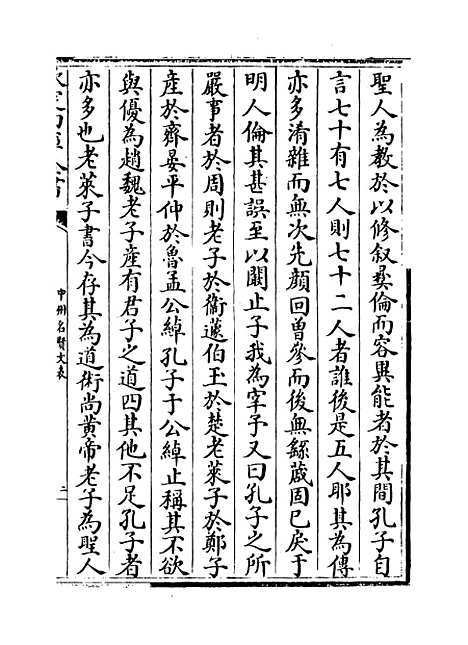 聖人為教於以修叙彝倫而容異能者於其間孔子自
言七十有七人則七十二人者誰後是五人耶其為傳
亦多淆雜而無次先顔回曾參而後無繇蒧固已戾于
明人倫其甚誤至以闞止子我為宰予又曰孔子之所
嚴事者於周則老子於衛蘧伯玉於楚老萊子於鄭子
産於齊晏平仲於魯孟公綽孔子于公綽止稱其不欲
與優為趙魏老子産有君子之道四其他不足孔子者
亦多也老萊子書今存其為道術尚黄帝老子為聖人
中州名賢文表
二